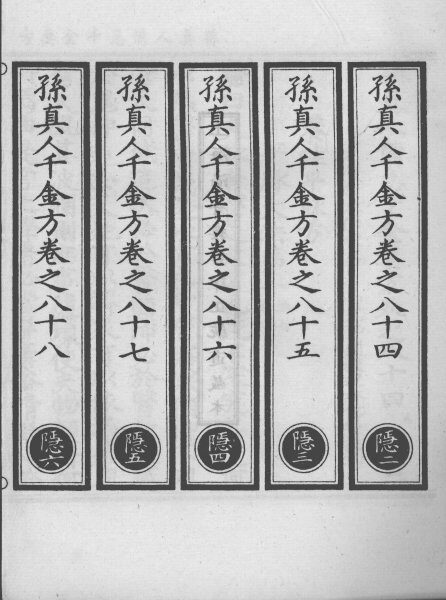 孫真人千金方卷之八十四
隱二
孫真人千金方卷之八十五
隱三
孫真人千金方卷之八十六
隱四
孫真人千金方卷之八十七
隱五
孫真人千金方卷之八十八
隱六